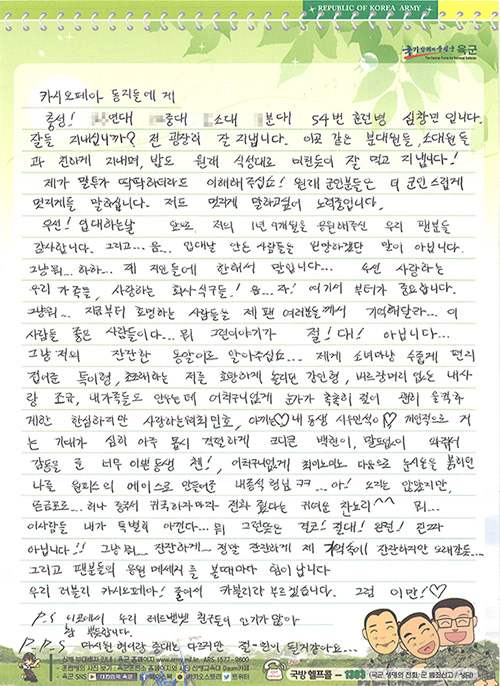 REPUBLIC OF KOREA ARMY
육군
카시오페아 동지들에게
충성! 연대 중대 소대 분대 54번 훈련병 심창민 입니다.
잘들 지내십니까? 전 굉장히 잘 지냅니다. 이곳 같은 분대원들, 소대원들
과 친하게 지내며, 밥도 원래 식성대로 미친듯이 잘 먹고 지냅니다!
제가 말투가 딱딱하더라도 이해해주십쇼! 원래 군인분들은 더 군인스럽게
멋지게들 말하십니다. 저도 멋지게 말하고싶어 노력중입니다.
우선! 입대하는날 앞으로 저의 1년 9개월을 응원해주신 우리 팬분들
감사합니다. 그리고... 음... 입대날 안온 사람들은 원망하겠단 말이 아닙니다.
그냥 뭐... 하하... 제 지인들에 한해서 말입니다... 우선 사랑하는
우리 가족들, 사랑하는 회사식구들! 음... 자! 여기서 부터가 중요합니다.
그냥뭐... 지금부터 호명하는 사람들은 제 팬 여러분들께서 기억해달라... 이
사람들 좋은 사람들이다... 뭐 그런이야기가 절! 대! 아닙니다...
그냥 저의 잔잔한 혼잣말이르 알아주십쇼... 제게 소녀마냥 수줍게 편지
접어준 특이형, 초조해하는 저를 호탕하게 놀리던 강인형, 버르장머리 없는 내사
랑 조규, 내가족들도 안우는데 어처구니없게 눈가가 촉촉히 젖어 괜히 울컥하
게한 한심하지만 사랑하는 최민호, 아끼는♡내 동생 시우민석이♡ 개인적으로 거
는 기대가 심히 아주 몹시 격렬하게 크디큰 백현이, 말도없이 와줘서
감동을 준 너무 이쁜동생 첸!, 어처구니없게 최미노미노 다음으로 눈시울을 붉히던
나를 원피스의 에이스로 만들어준 내종석형님 ㅋㅋ...아! 오지는 않았지만,
뜬금포로... 혀나 중국서 귀국하자마자 전화 줬다는 귀여운 찬노리^^ 뭐...
이사람들 내가 특별히 아낀다... 뭐 그런뜻은 결코! 절대! 완전! 진짜
아닙니다!! 그냥 뭐... 잔잔하게... 정말 잔잔하게 제 기억속에 잔잔하지만 오래갈듯...
그리고 팬분들의 응원 메세지를 볼때마다 힘이 납니다
우리 러블리 카시오페아! 줄여서 카블리라 부르겠습니다. 그럼 이만!♡
P.S 이곳에서 우리 레드벨벳 친구들이 인기가 많아
참 뿌듯합니다.
P.P.S 마시던 연어랑 중대는 다르지만 절-친이 된거같아요...
국방헬프콜 - 1303